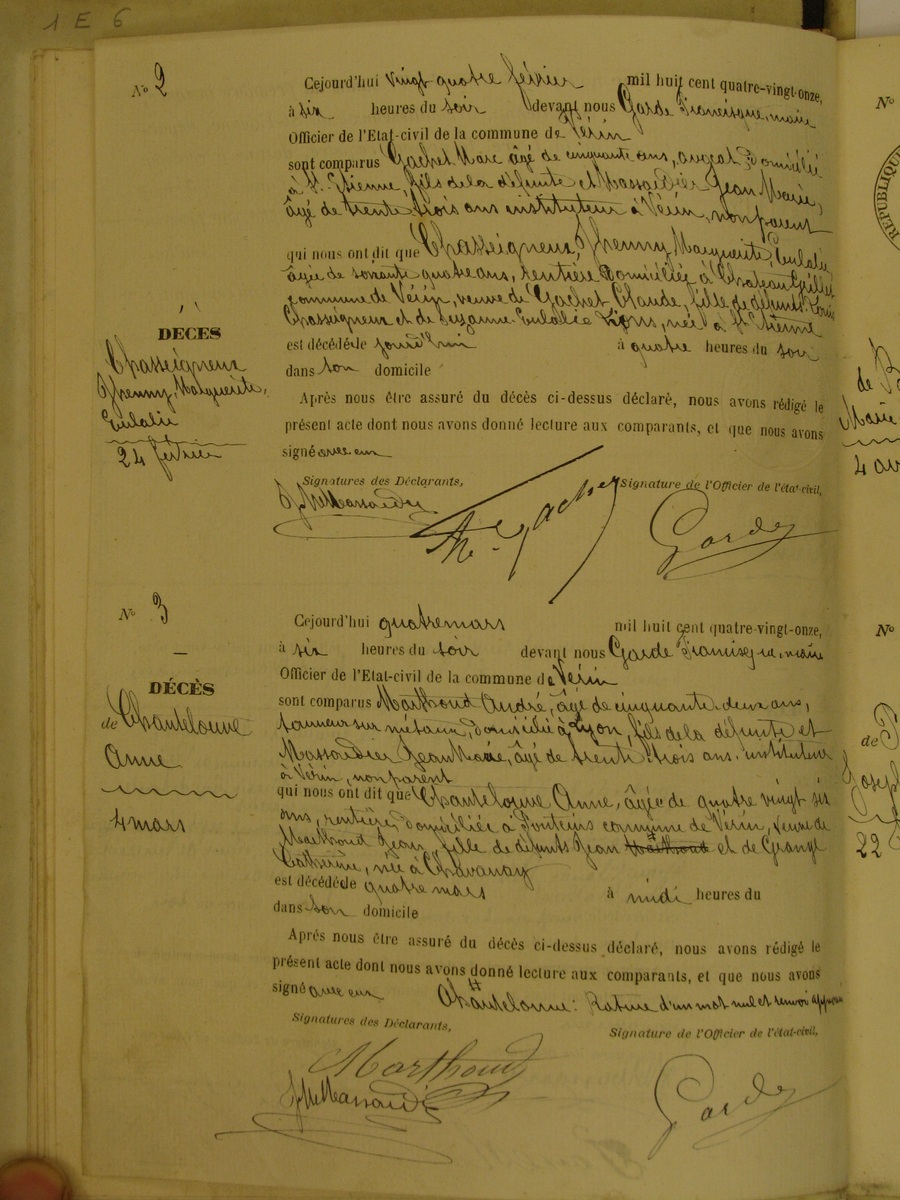 1 E 6
No 2
Cejourd'hui vingt quatre février mil huit cent quatre-vingt-onze,
à six heures du soir devant nous Garde Francisque, maire
Officier de l'Etat-civil de la commune de Vérin
sont comparus Gachet Marc âgé de cinquante ans, avocat domicilié
à St. Etienne, fils de la défunte et Massardier Jean Marie,
âgé de trente trois ans instituteur à Vérin, non parent
qui nous ont dit que Chasseigneux, Jhenny, Marguerite, Eulalie
âgée de soixante quatre ans, rentière domiciliée à Chateau Grillet
commune de Vérin, veuve de Gachet Claude, fille de défunts Louis
Chasseigneux et de Suzanne Eulalie, née à St Etienne
est décédée jourd'hui à quatre heures du soir
dans son domicile
Après nous être assuré du décès ci-dessus déclaré, nous avons rédigé le
présent acte dont nous avons donné lecture aux comparants, et que nous avons
signé avec eux
DÉCÈS
Chasseigneux
Jhenny, Marguerite,
Eulalie
24 février
Signatures des Déclarants,
Signature de l'Officier de l'état-civil,
JM Massardier
Gachet
Garde
No 3
Cejourd'hui quatre mars mil huit cent quatre-vingt-onze,
à six heures du soir devant nous Garde Francisque, maire
Officier de l'Etat-civil de la commune de Vérin
sont comparus Marthoud André, âgé de cinquante-deux ans,
tourneur sur métaux, domicilié à Lyon, fils de la défunte et
Massardier Jean Marie, âgé de trente trois ans, instituteur
à Vérin, non parent
qui nous ont dit que Chantelouve Anne, âgée de quatre vingt six
ans, rentière, domiciliée à commune de Vérin, veuve de
Marthoud Jean, fille de défunts Jean Marthoud # et de Grange
Catherine, née à Chavanay
est décédée quatre mars à midi heures du
dans son domicile
Après nous être assuré du décès ci-dessus déclaré, nous avons rédigé le
présent acte dont nous avons donné lecture aux comparants, et que nous avons
signé avec eux # Chantelouve: Rature d'un mot nul et renvoi approuvés
DÉCÈS
de Chantelouve
Anne
4 mars
Signatures des Déclarants,
Signature de l'Officier de l'état-civil,
Marthoud
JM Massardier
Garde
No
RÉPUBLIQUE
de
Marie
4 av
No
de
Joseph
22